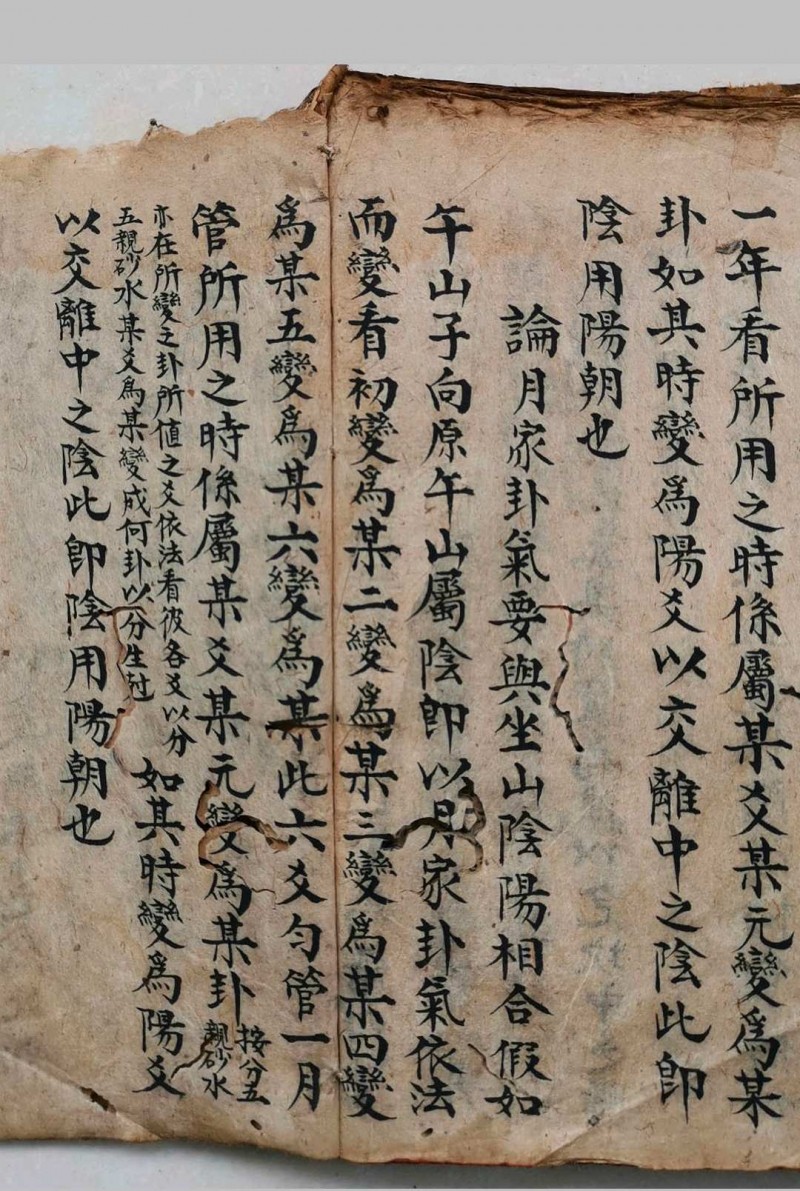 一年看所用之時係屬某爻某元變爲某
卦如其時變爲陽爻以交離中之陰此卽
陰用陽朝也
論月家卦氣要與坐山陰陽相合假如
午山子向原午山屬陰卽以月家卦氣依法
而變看初變爲某二變爲某三變爲某四變
爲某五變爲某六變爲某此六爻勻管一月
管所用之時係屬某爻某元變爲某卦
按分五
親砂水
亦在所變之卦所值之爻依法看彼各爻以分
五親砂水某爻爲某變成何卦以分生尅
如其時變爲陽爻
以交離中之陰此卽陰用陽朝也